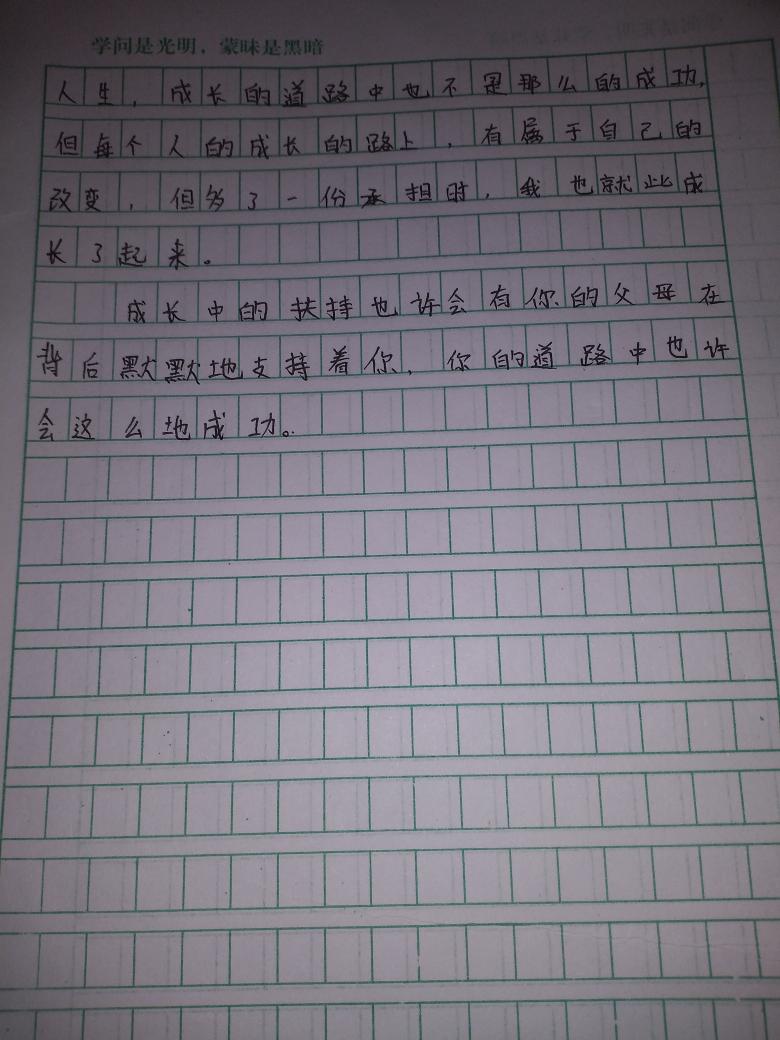 学问是光明，蒙昧是黑暗
人生，成长的道路中也不是那么的成功，
但每个人的成长的路上，有属于自己的
改变，但多了一份承担时，我也就此成
长了起来。
成长中的扶持也许会有你的父母在
背后默默地支持着你，你的道路中也许
会这么地成功。